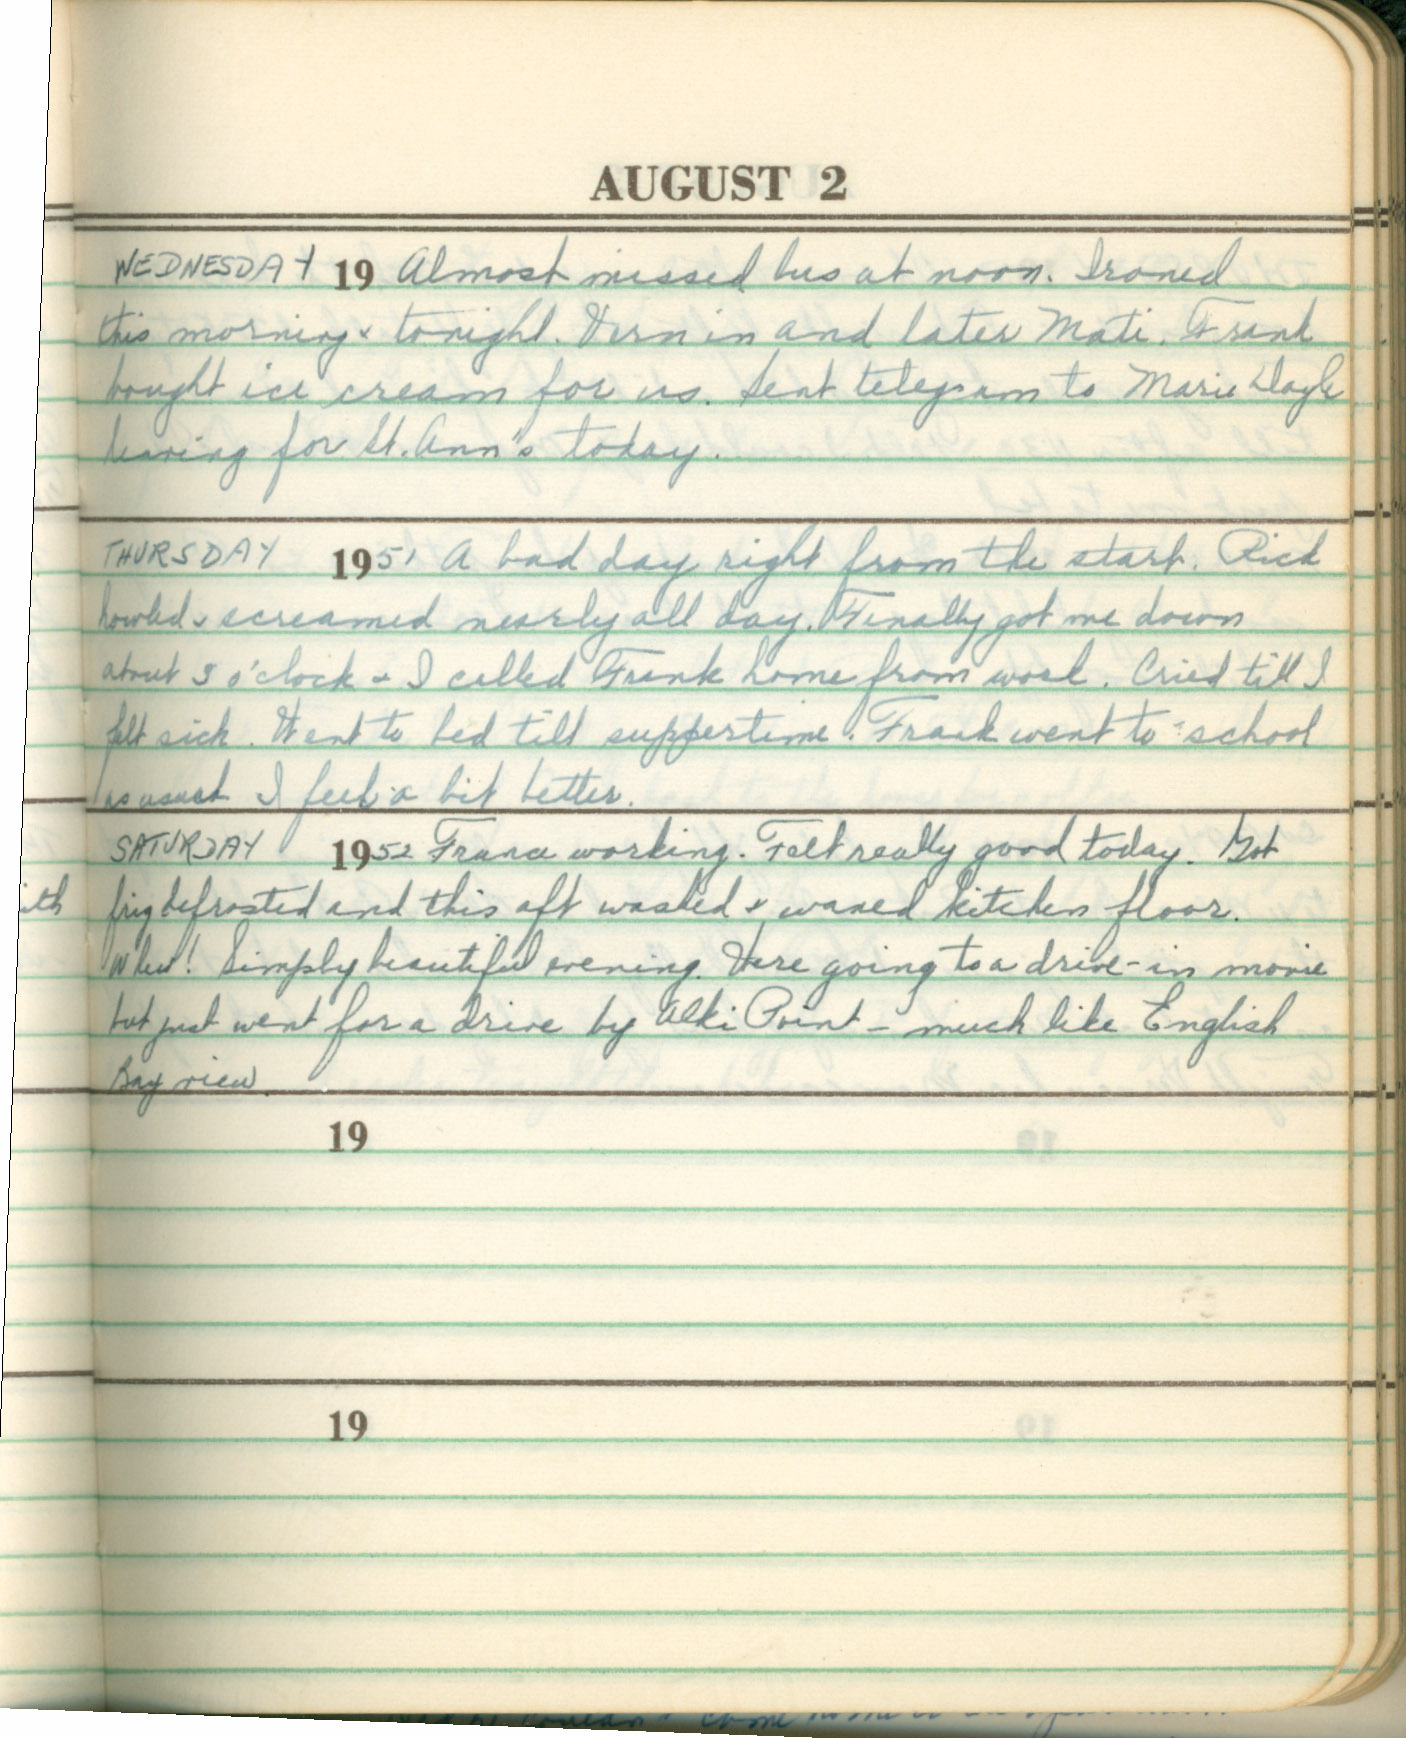 AUGUST 2
WEDNESDAY 19 Almost missed bus at noon. Ironed
this morning & tonight. Vern in and later Mati. Frank
bought ice cream for us. Sent telegram to Marie Doyle
leaving for St. Ann's today.
THURSDAY 1951 A bad day right from the start. Rick
howled & screamed nearly all day. Finally got me down
about 3 o'clock & I called Frank home from work. Cried till I
felt sick. Went to bed till suppertime. Frank went to school
as usual I feel a bit better.
SATURDAY 1952 France working. Felt really good today. Got
frig defrosted and this aft washed & waxed kitchen floor.
Whew! Simply beautiful evening. Were going to a drive-in movie
but just went for a drive by Alki Point - much like English
Bay view.
19
19
ith